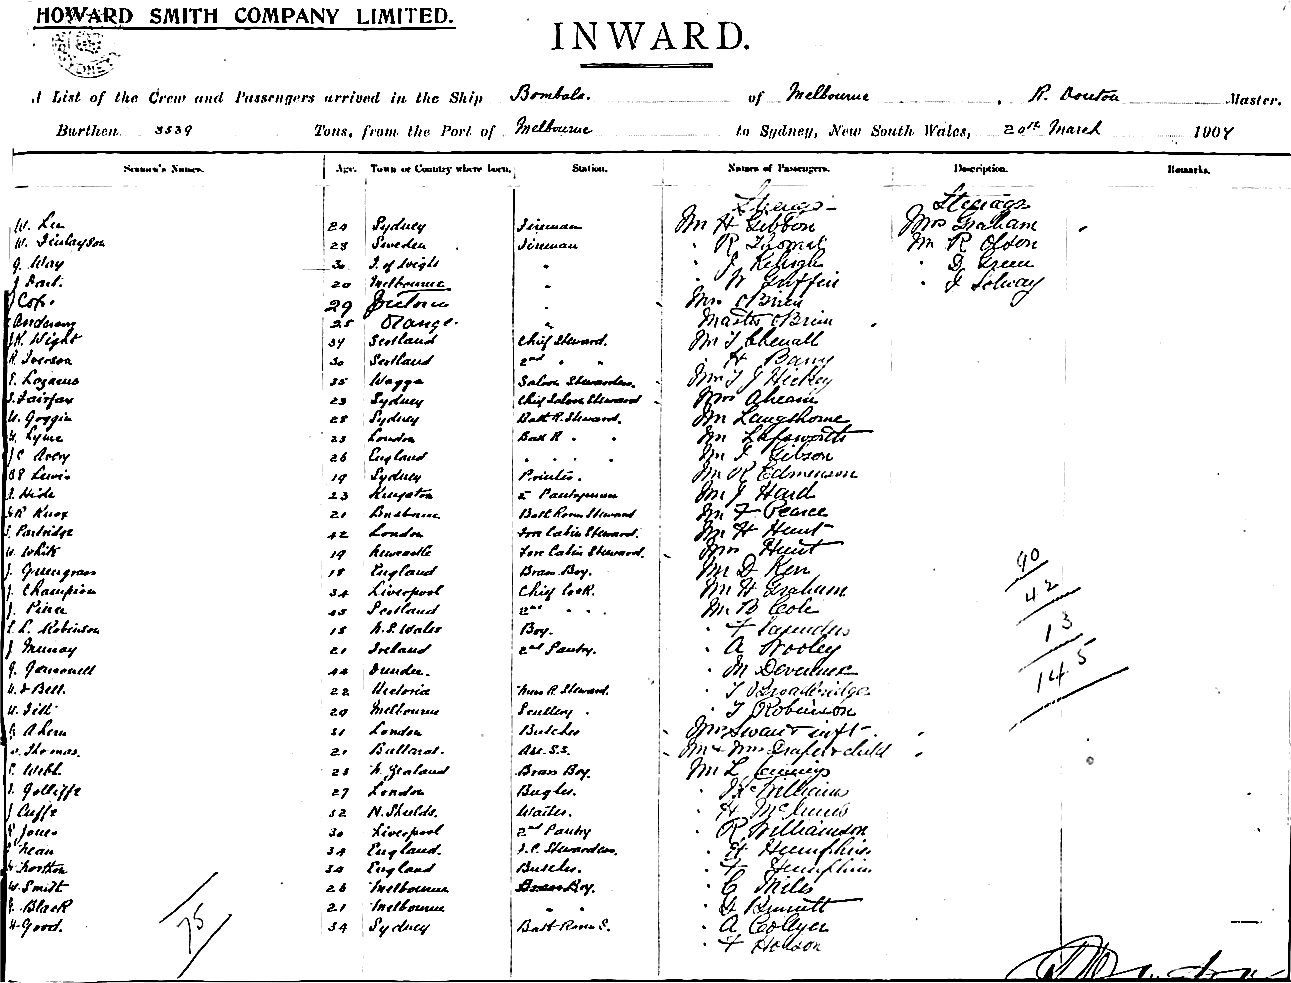 HOWARD SMITH COMPANY LIMITED.
SYDNEY
INWARD.
A List of the Crew and Passengers arrived in the Ship Bombala. of Melbourne, R. Master.
Burthen 3539 Tons, from the Port of Melbourne to Sydney, New South Wales, 20th March 1907
Seamen's Names. Age. Town or Country where born. Station. Names of Passengers. Description. Remarks.
Steerage Steerage
W. Lee 20 Sydney Fireman Mr H Gibbon Mrs Graham
W. Finlayson 28 Sweden Fireman " R Thomas Mr R Olsen
G. Way 30 I. of Wight " " J Kehogh " D Green
J 20 Melbourne " " W Griffin " J Solway
J Cope 29 Victoria " Mrs O'Brien
25 Orange. " Master O'Brien
J.K. Wight 34 Scotland Chief Steward. Mr T Chenall
R. Iverson 30 Scotland 2nd " " " H Barry
Lazarus 35 Wagga Saloon Stewardess. Mrs T J Hickey
Fairfax 23 Sydney Chief Saloon Steward Mrs Ahearn
W. Goggin 28 Sydney Bath R. Steward. Mr Langthorne
Lyne 23 London Bath R " " Mr
J C Avery 26 England " " " " Mr J Gibson
Lewis 19 Sydney Printer. Mr R Edmenson
Hide 23 Kingston " Pantryman Mr J Hard
Knox 21 Brisbane Bath Room Steward Mr F Pearce
Partridge 42 London Fore Cabin Steward. Mr H Hunt
W. White 19 Newcastle Fore Cabin Steward. Mrs Hunt
J. Greengrass 18 England Brass Boy. Mr D Kerr
J. Champion 34 Liverpool Chief Cook. Mr H Graham
J. 45 Scotland 2nd " " Mr B Cole
L. Robinson 18 N.S. Wales Boy. " F Saunders
J Murray 21 Ireland 2nd Pantry. " A Wooley
G. 44 Dundee. " M Devereux
Bell. 22 Victoria R. Steward. " T Broadbridge
W. 20 Melbourne Scullery. " J Robinson
Ahern 31 London Butcher Mrs Swan & inft.
Thomas. 21 Ballarat. Ass. S.S. Mr & Mrs Draper & child
Webb. 23 N. Zealand Brass Boy. Mr L Jennings
Golliffe 27 London Bugler. " J McWilliams
J Cuffe 32 N. Shields. Waiter. " H McInnes
Jones 30 Liverpool 2nd Pantry " R Williamson
34 England. F.C. Stewardess. " H Humphries
Northon 34 England Butcher. " F Humphries
W. Smith 26 Melbourne Brass Boy. " C Miles
Black 21 Melbourne " " " G Bennett
Good. 34 Sydney Bath Room S. " A Collyer
" F Hobson
90
42
13
145
75